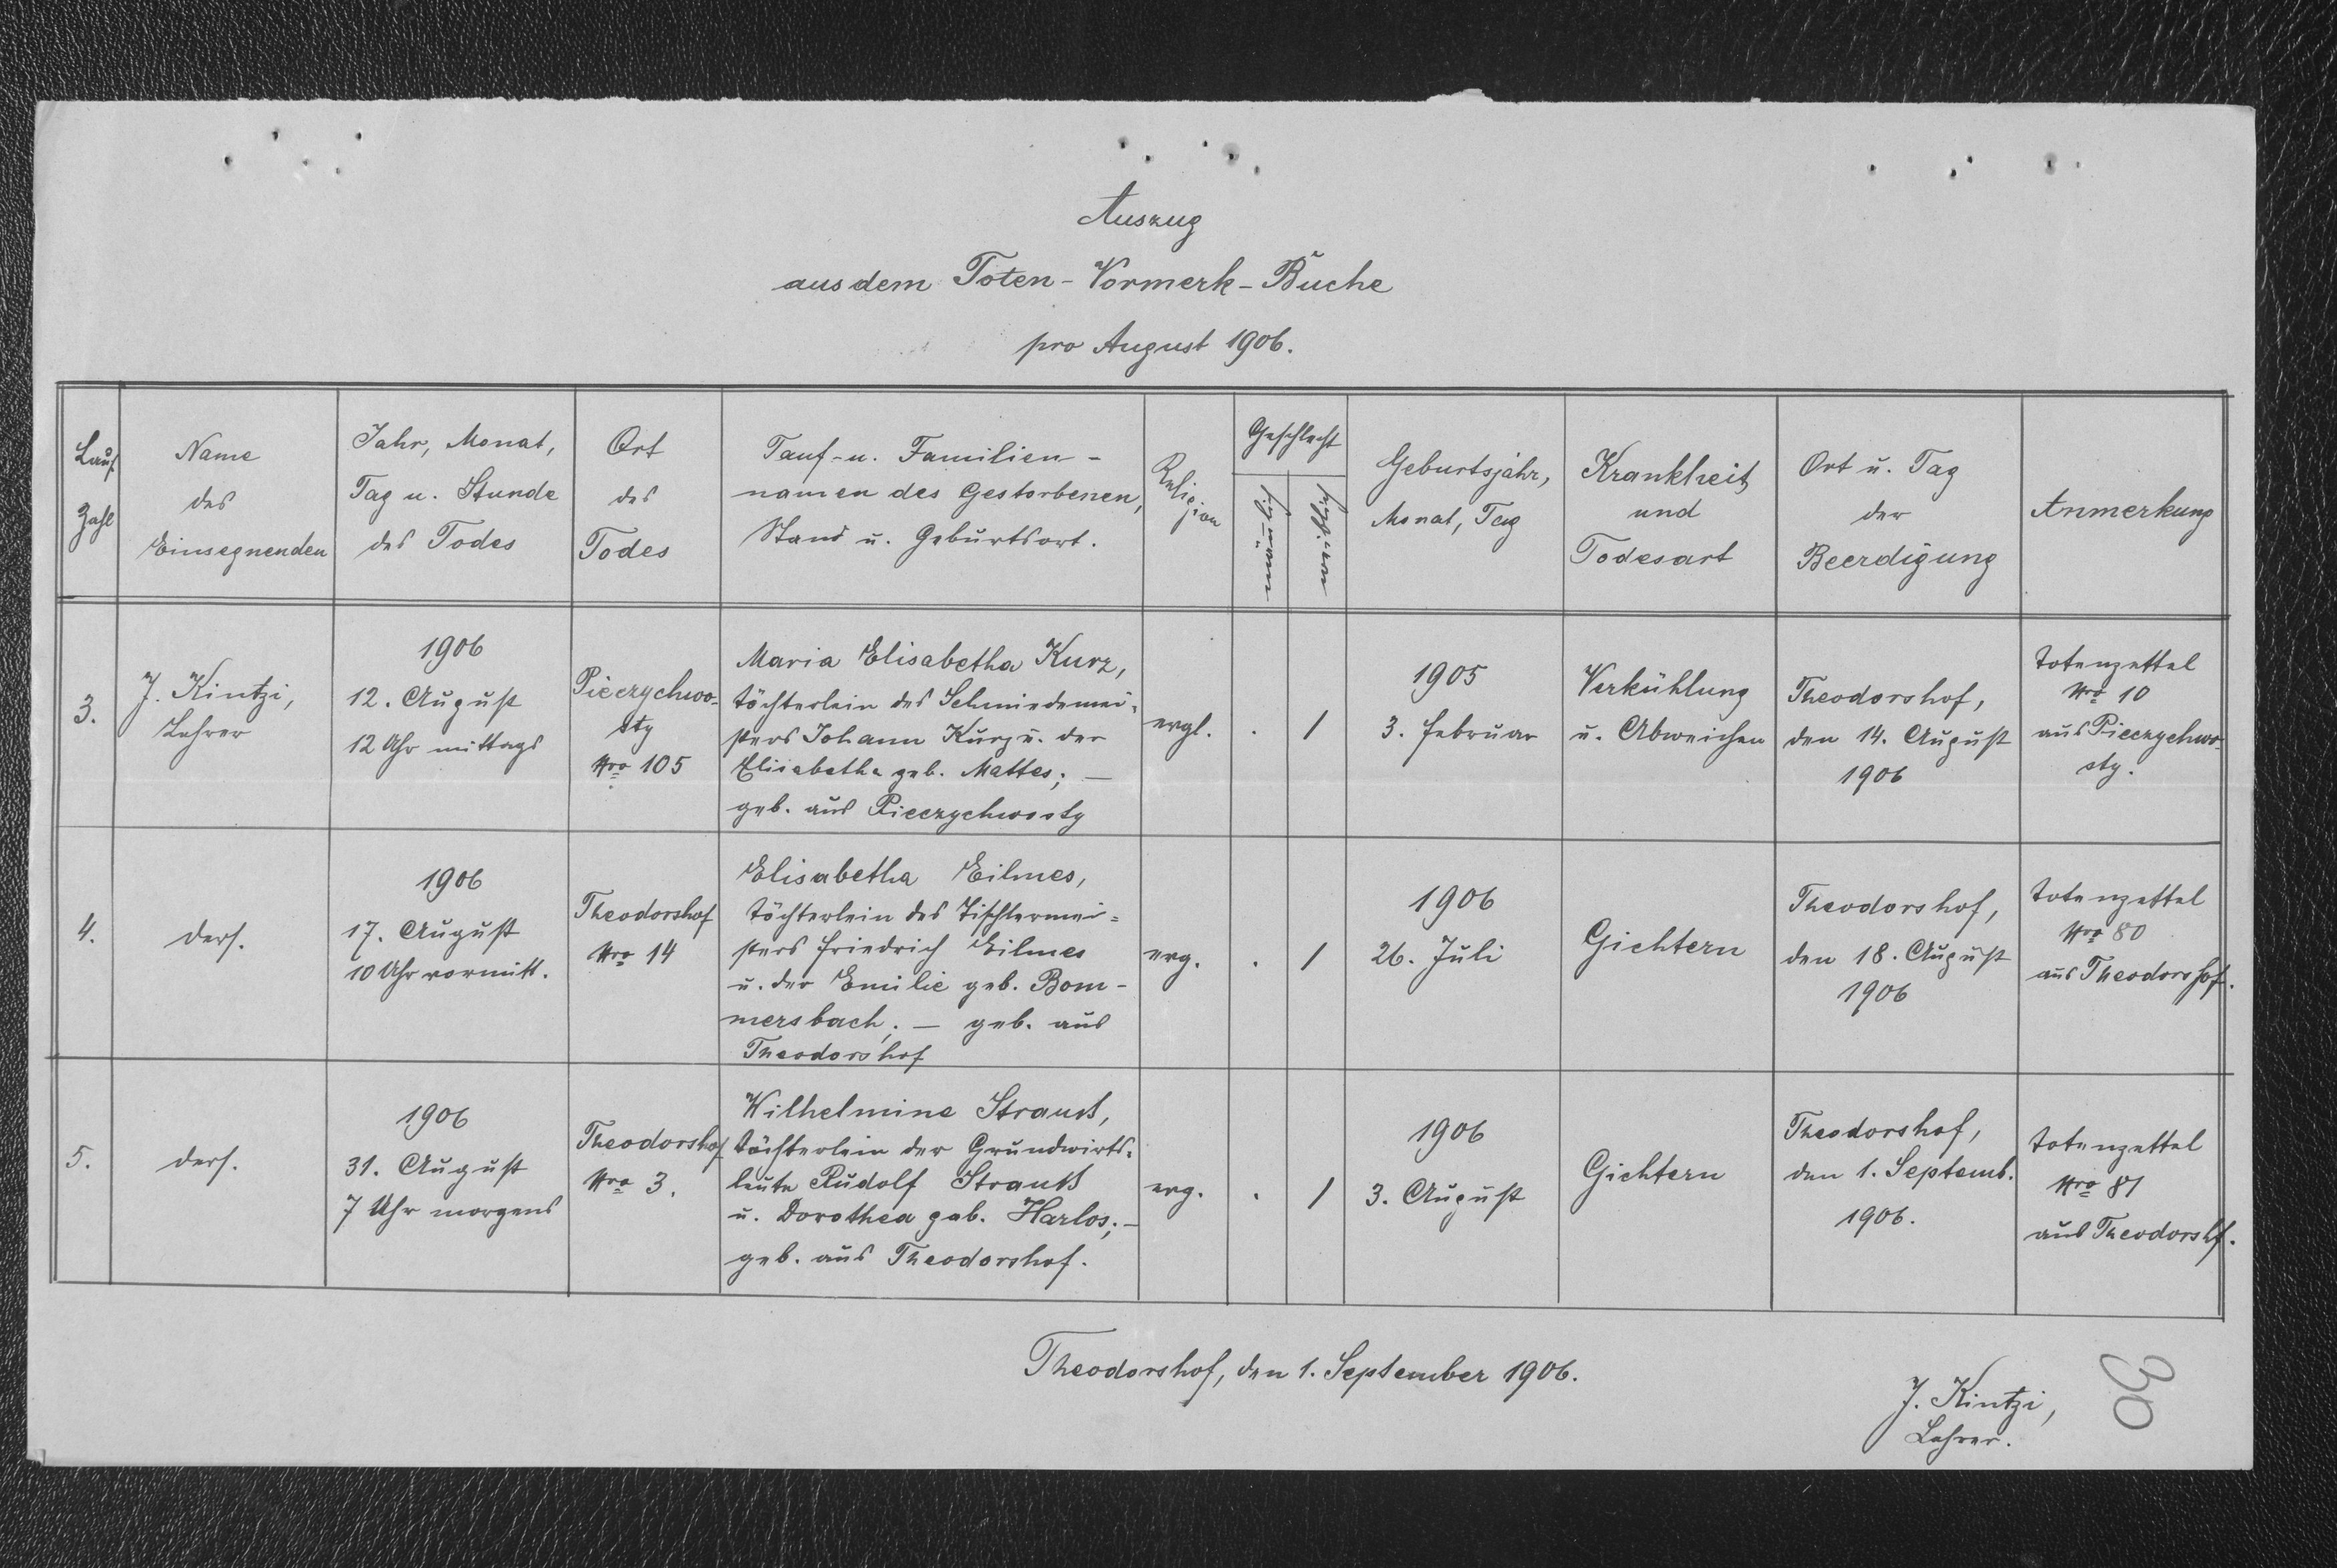 Auszug
aus dem Toten-Vormerk-Buche
pro August 1906.
Lauf. Zahl
Name des Einsegnenden
Jahr, Monat, Tag u. Stunde des Todes
Ort des Todes
Tauf- u. Familien-
namen des Gestorbenen,
Stand u. Geburtsort.
Religion
Geschlecht
männlich
weiblich
Geburtsjahr, Monat, Tag
Krankheit und Todesart
Ort u. Tag der Beerdigung
Anmerkung
3.
J. Kintzi,
Lehrer
1906
12. August
12 Uhr mittags
Pieczychwo-
sty
Nro 105
Maria Elisabetha Kurz,
Töchterlein des Schmiedemei-
sters Johann Kurz u. der
Elisabetha geb. Mattes; —
geb. aus Pieczychwosty
evgl.
.
1
1905
3. Februar
Verkühlung
u. Abweichen
Theodorshof,
den 14. August
1906
Totenzettel
Nro 10
aus Pieczychwo-
sty.
4.
ders.
1906
17. August
10 Uhr vormitt.
Theodorshof
Nro 14
Elisabetha Eilmes,
Töchterlein des Tischlermei-
sters Friedrich Eilmes
u. der Emilie geb. Bom-
mersbach; — geb. aus
Theodorshof
evg.
.
1
1906
26. Juli
Gichtern
Theodorshof,
den 18. August
1906
Totenzettel
Nro 80
aus Theodorshof.
5.
ders.
1906
31. August
7 Uhr morgens
Theodorshof
Nro 3.
Wilhelmine Strauß,
Töchterlein der Grundwirts-
leute Rudolf Strauß
u. Dorothea geb. Harlos; —
geb. aus Theodorshof.
evg.
.
1
1906
3. August
Gichtern
Theodorshof,
den 1. Septemb.
1906.
Totenzettel
Nro 81
aus Theodorshf.
Theodorshof, den 1. September 1906.
J. Kintzi,
Lehrer.
30